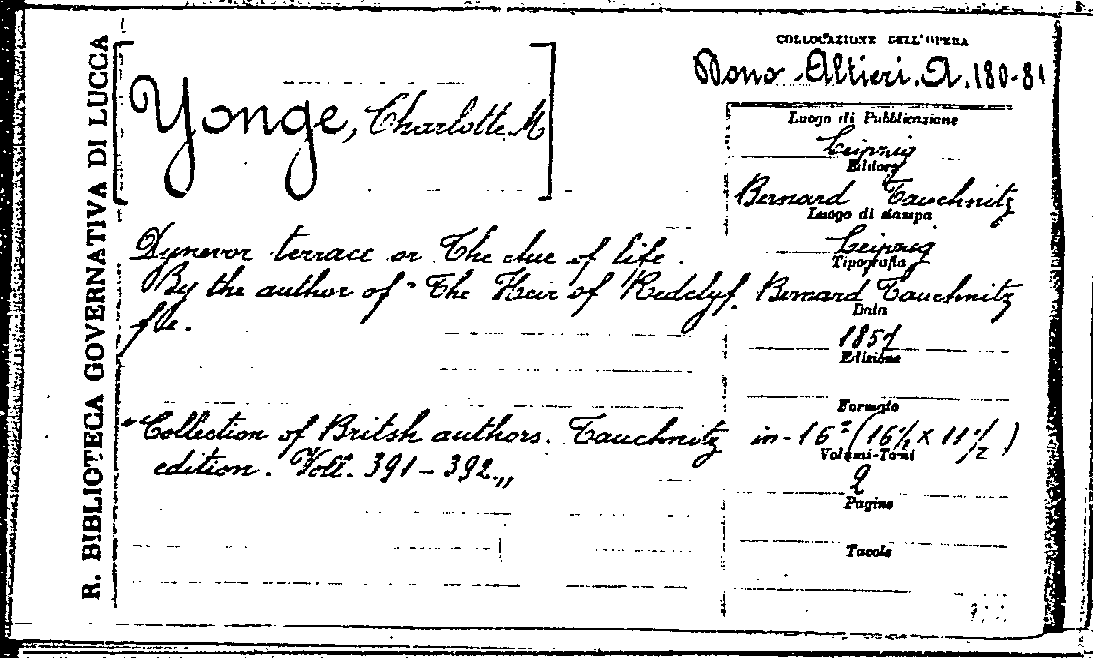 R. BIBLIOTECA GOVERNATIVA DI LUCCA
[Yonge, Charlotte M]
Dynevor terrace or The clue of life.
By the author of "The Heir of Redclyf
fe.
"Collection of Britsh authors. Tauchnitz
edition. Voll. 391-392."
COLLOCAZIONE DELL'OPERA
Dono Altieri. A. 180-81
Luogo di Pubblicazione
Leipzig
Editore
Bernard Tauchnitz
Luogo di stampa
Leipzig
Tipografia
Bernard Tauchnitz
Data
1857
Edizione
Formato
in-16° (16½ x 11½)
Volumi-Tomi
2
Pagine
Tavole